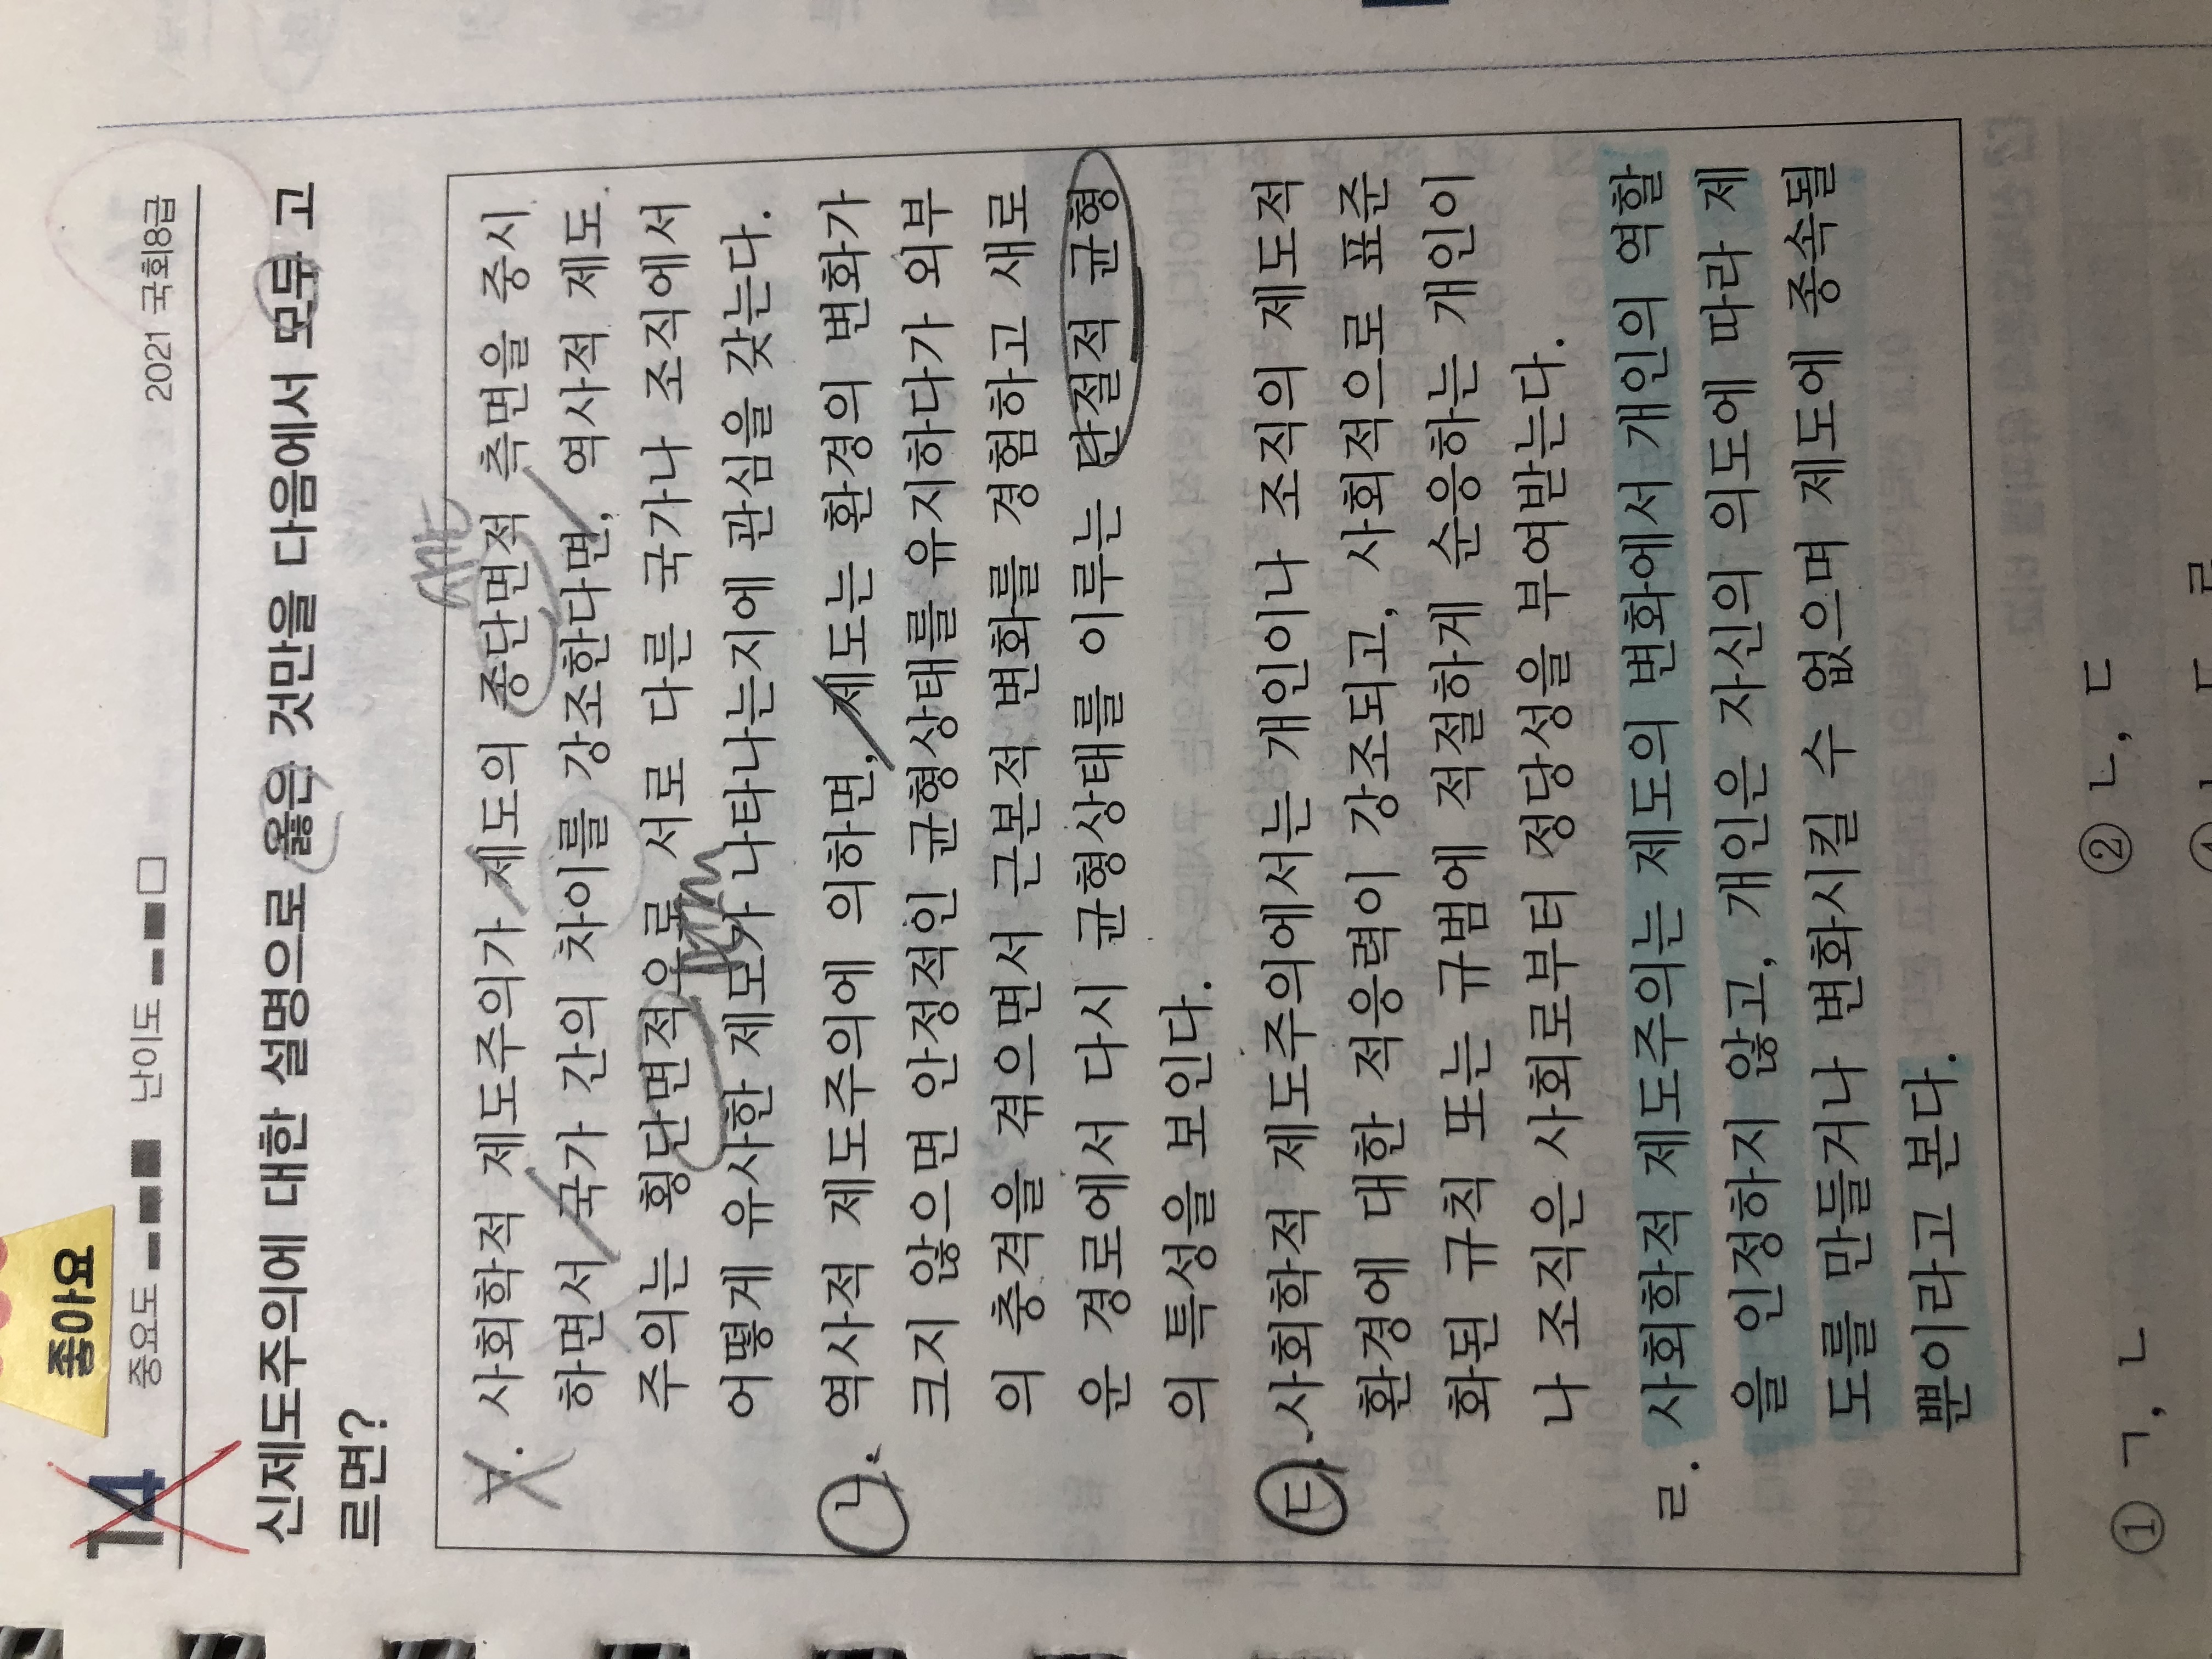 좋아요
14
중요도 난이도 2021 국회8급
신제도주의에 대한 설명으로 옳은 것만을 다음에서 모두 고
르면?
ㄱ. 사회학적 제도주의가 제도의 종단면적 측면을 중시
하면서 국가 간의 차이를 강조한다면, 역사적 제도
주의는 횡단면적으로 서로 다른 국가나 조직에서
어떻게 유사한 제도가 나타나는지에 관심을 갖는다.
ㄴ. 역사적 제도주의에 의하면, 제도는 환경의 변화가
크지 않으면 안정적인 균형상태를 유지하다가 외부
의 충격을 겪으면서 근본적 변화를 경험하고 새로
운 경로에서 다시 균형상태를 이루는 단절적 균형
의 특성을 보인다.
ㄷ. 사회학적 제도주의에서는 개인이나 조직의 제도적
환경에 대한 적응력이 강조되고, 사회적으로 표준
화된 규칙 또는 규범에 적절하게 순응하는 개인이
나 조직은 사회로부터 정당성을 부여받는다.
ㄹ. 사회학적 제도주의는 제도의 변화에서 개인의 역할
을 인정하지 않고, 개인은 자신의 의도에 따라 제
도를 만들거나 변화시킬 수 없으며 제도에 종속될
뿐이라고 본다.
① ㄱ, ㄴ ② ㄴ, ㄷ